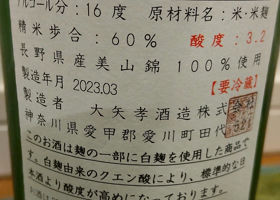 アルコール分：16度 原材料名：米・米麹
精米歩合：60% 酸度：3.2
長野県産美山錦 100%使用
製造年月 2023.03 【要冷蔵】
製造者 大矢孝酒造株式会社
神奈川県愛甲郡愛川町田代
このお酒は麹の一部に白麹を使用した商品で
す。白麹由来のクエン酸により、標準的な日
本酒より酸度が高めになっております。